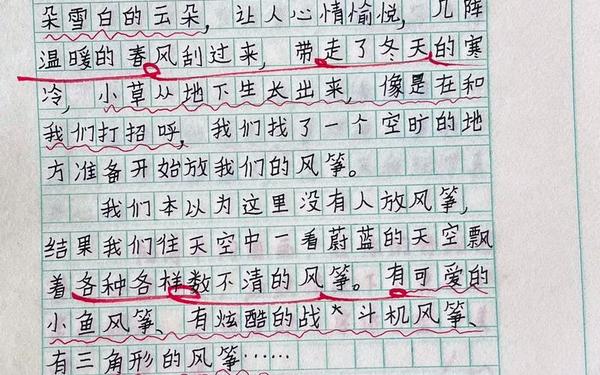 朵雪白的云朵，让人心情愉悦，几阵
温暖的春风刮过来，带走了冬天的寒
冷，小草从地下生长出来，像是在和
我们打招呼，我们找了一个空旷的地
方准备开始放我们的风筝。
我们本以为这里没有人放风筝，
结果我们往天空中一看蔚蓝的天空飘
着各种各样数不清的风筝。有可爱的
小鱼风筝、有炫酷的战*斗机风筝、
有三角形的风筝……